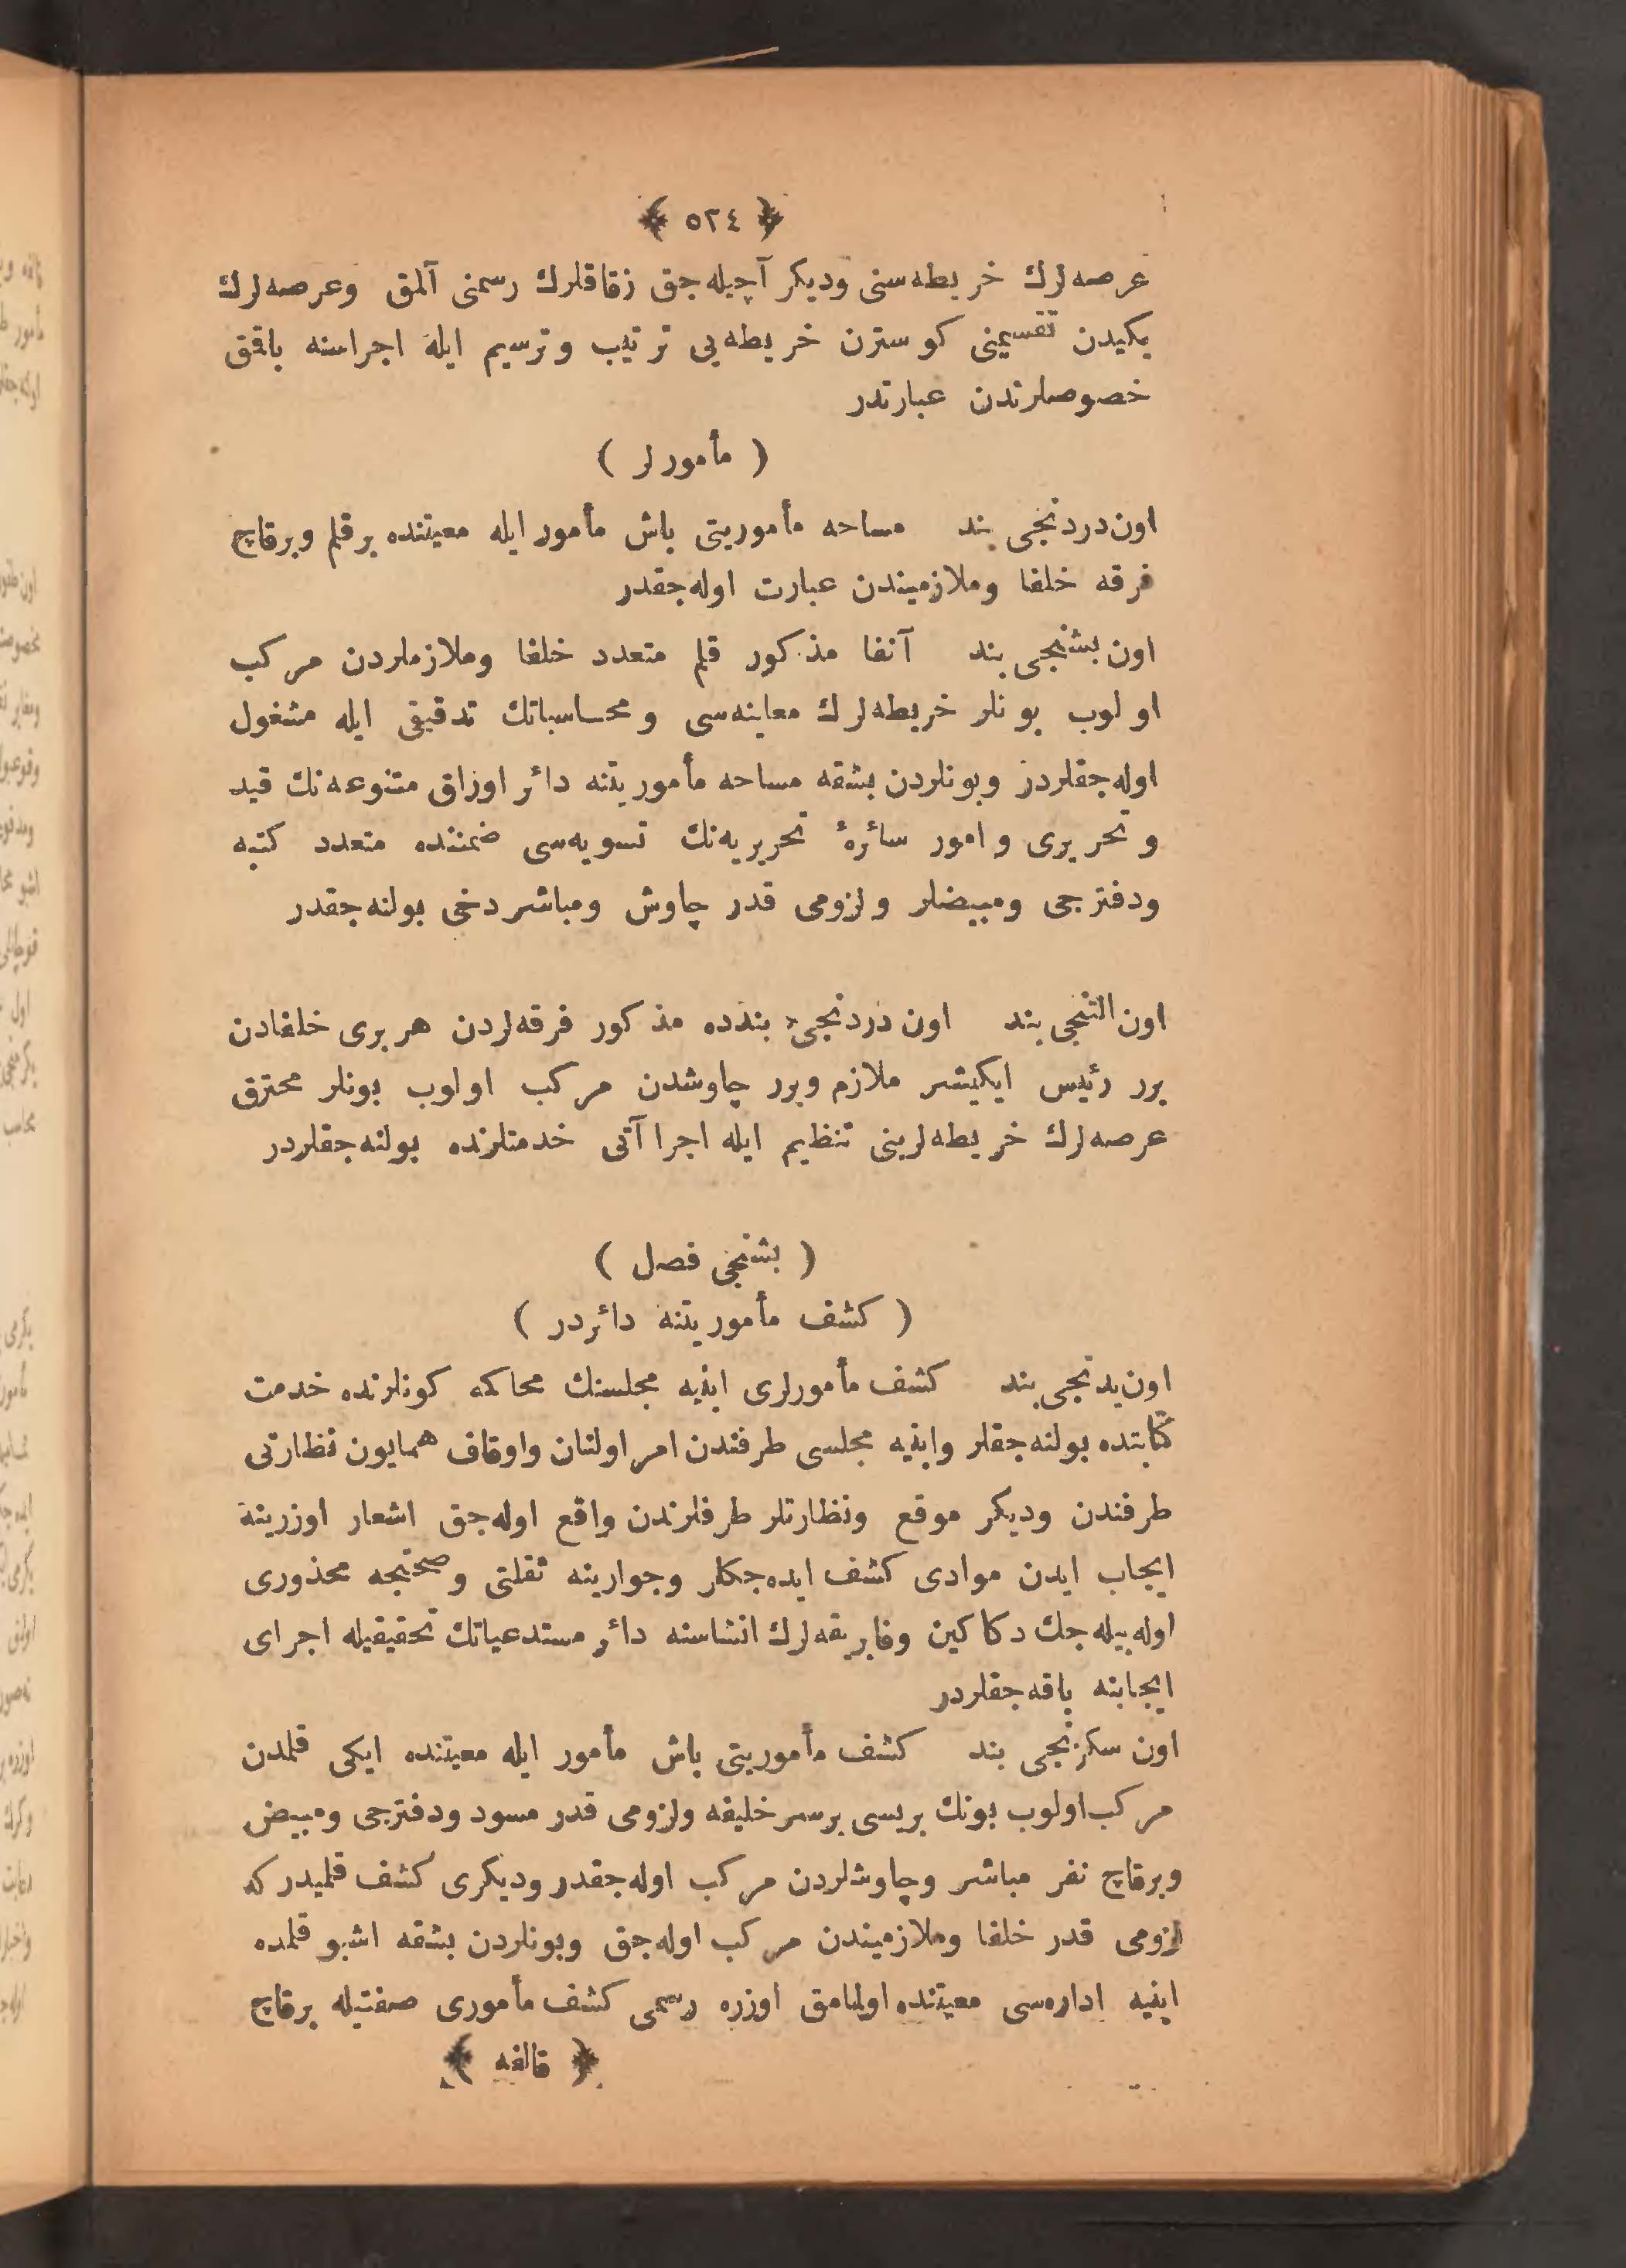 ﴿ ٥٢٤ ﴾
عرصه‌لرك خريطه‌سنى وديكر آچيله‌جق زقاقلرك رسمنى آلمق وعرصه‌لرك
يكيدن تقسيمنى كوسترن خريطه‌يى ترتيب وترسيم ايله اجراسنه باقمق
خصوصلرندن عبارتدر
( مأمورلر )
اون‌دردنجى بند مساحه مأموريتى باش مأمور ايله معيتنده برقلم وبرقاچ
فرقه خلفا وملازميندن عبارت اوله‌جقدر
اون بشنجى بند آنفا مذكور قلم متعدد خلفا وملازملردن مركب
اولوب بونلر خريطه‌لرك معاينه‌سى ومحاسباتك تدقيقى ايله مشغول
اوله‌جقلردر وبونلردن بشقه مساحه مأموريتنه دائر اوراق متنوعه‌نك قيد
وتحريرى وامور سائرۀ تحريريه‌نك تسويه‌سى ضمننده متعدد كتبه
ودفترجى ومبيضلر ولزومى قدر چاوش ومباشر دخى بولنه‌جقدر
اون التنجى بند اون دردنجى بندده مذكور فرقه‌لردن هر برى خلفادن
برر رئيس ايكيشر ملازم وبرر چاوشدن مركب اولوب بونلر محترق
عرصه‌لرك خريطه‌لرينى تنظيم ايله اجراآتى خدمتلرنده بولنه‌جقلردر
( بشنجى فصل )
( كشف مأموريتنه دائردر )
اون‌يدنجى بند كشف مأمورلرى ابنيه مجلسنك محاكمه كونلرنده خدمت
كتابتده بولنه‌جقلر وابنيه مجلسى طرفندن امر اولنان واوقاف همايون نظارتى
طرفندن وديكر موقع ونظارتلر طرفلرندن واقع اوله‌جق اشعار اوزرينه
ايجاب ايدن موادى كشف ايده‌جكلر وجوارينه ثقلتى وصحتجه محذورى
اوله‌بيله‌جك دكاكين وفابريقه‌لرك انشاسنه دائر مستدعياتك تحقيقيله اجراى
ايجابنه باقه‌جقلردر
اون سكزنجى بند كشف مأموريتى باش مأمور ايله معيتنده ايكى قلمدن
مركب اولوب بونك بريسى برسر خليفه ولزومى قدر مسود ودفترجى ومبيض
وبرقاچ نفر مباشر وچاوشلردن مركب اوله‌جقدر وديكرى كشف قلميدركه
لزومى قدر خلفا وملازميندن مركب اوله‌جق وبونلردن بشقه اشبو قلمده
ابنيه اداره‌سى معيتنده اولمامق اوزره رسمى كشف مأمورى صفتيله برقاچ
﴿ قالفه ﴾